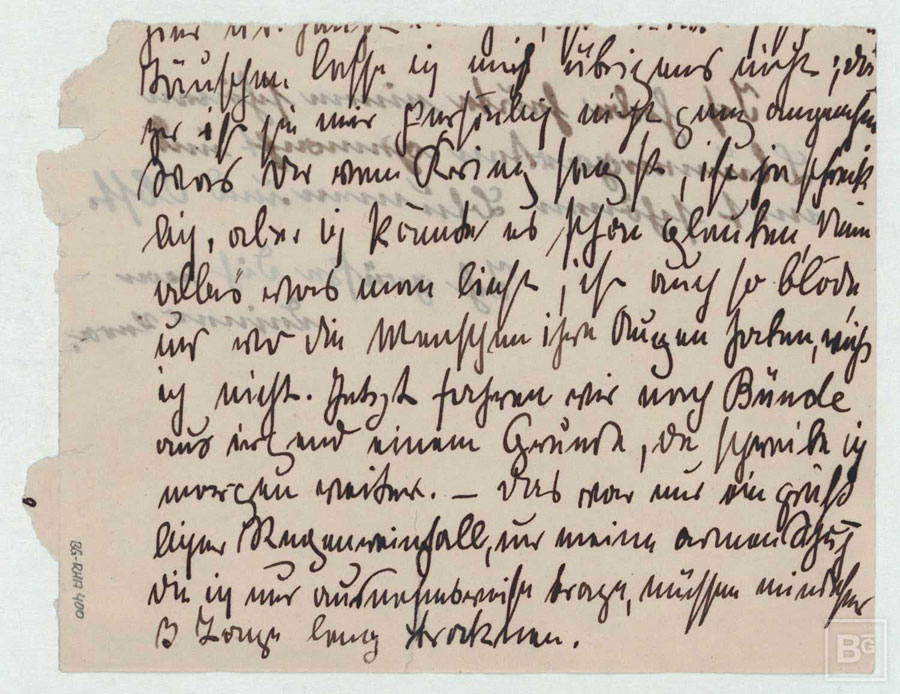 täuschen lasse ich mich übrigens nicht, da-
zu ist sie mir persönlich nicht ganz angenehm
Was Du vom Kring sagst, ist ja schreck-
lich, aber ich könnte es schon glauben, denn
alles was man liest, ist auch so blöde,
und wo die Menschen ihre Augen haben, weiß
ich nicht. Jetzt fahren wir nach Bünde
aus irgend einem Grunde, da schreibe ich
morgen weiter. – Das war nur ein gräß-
licher Regenreinfall, und meine armen Schuh
die ich nur ausnahmsweise trage, müssen mindestens
3 Tage lang trocknen.
BG-RHA 400
BG